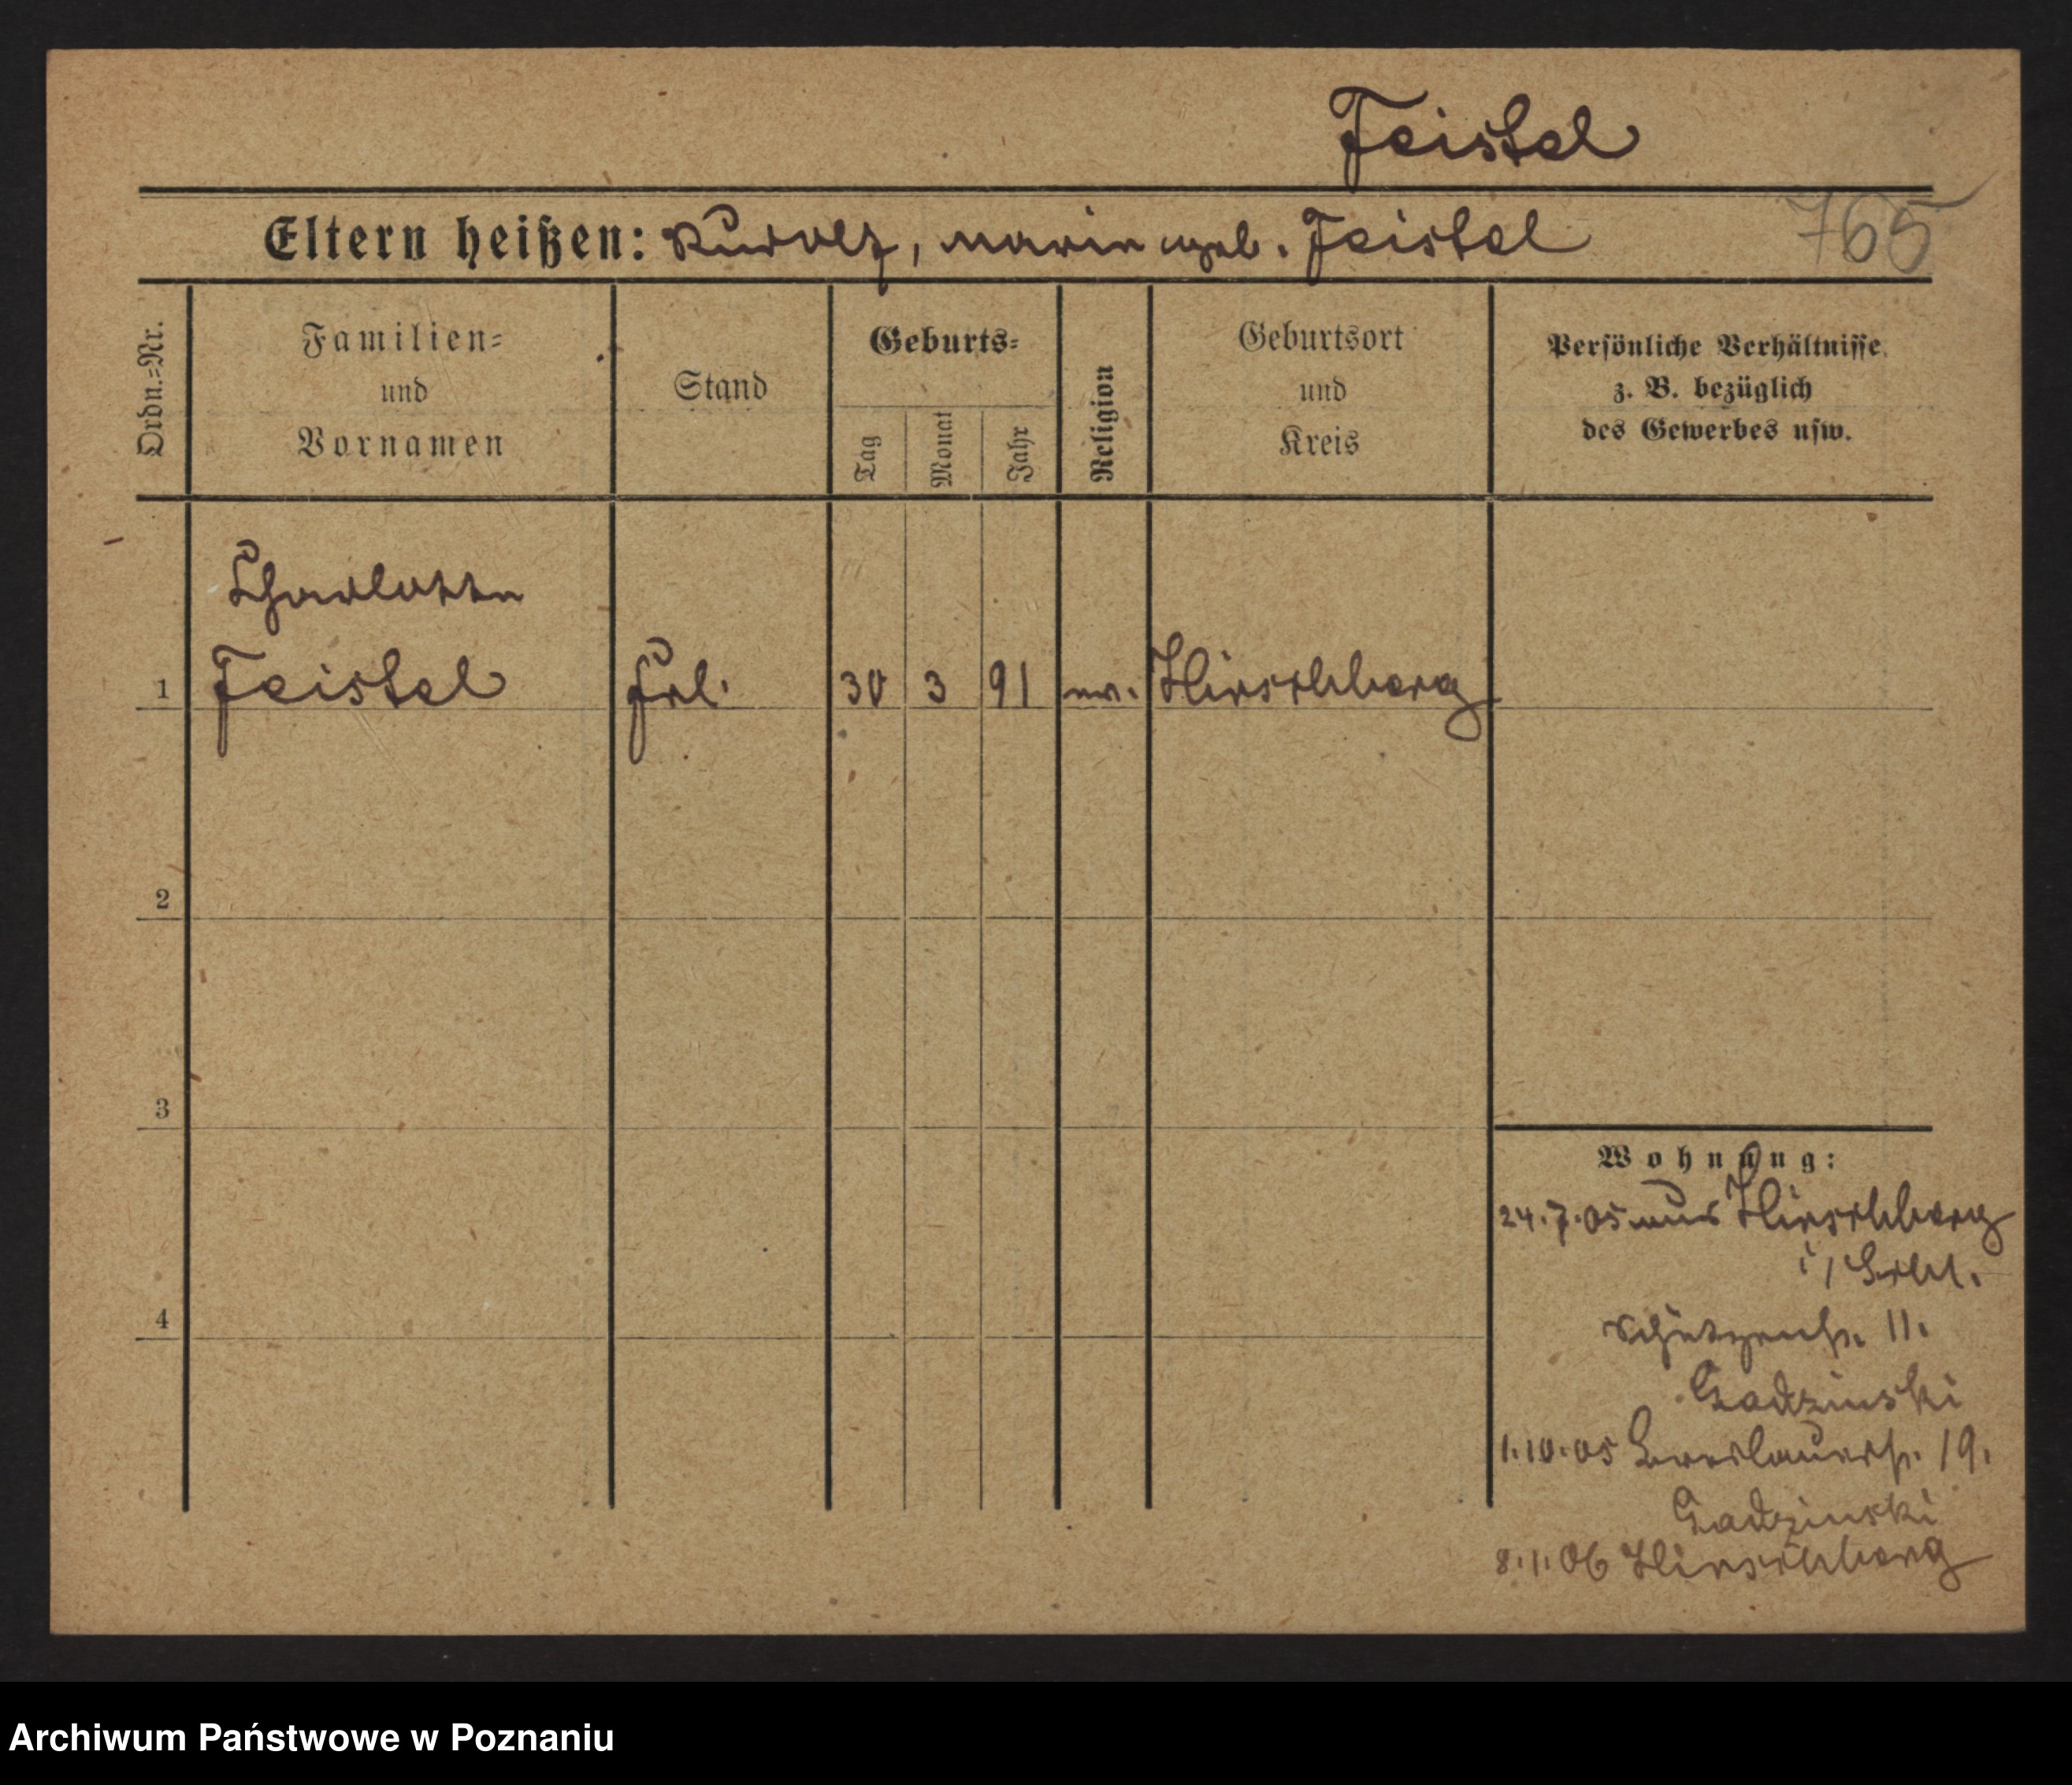 Feistel
Eltern heißen: Rudolf, Marie geb. Feistel
765
Ordn.=Nr.
Familien=
und
Vornamen
Stand
Geburts=
Tag
Monat
Jahr
Religion
Geburtsort
und
Kreis
Persönliche Verhältnisse
z. B. bezüglich
des Gewerbes usw.
Charlotte
1 Feistel Frl. 30 3 91 ev. Hirschberg
2
3
4
Wohnung:
24.7.05 aus Hirschberg
i/Schl.
Schützenstr. 11.
Gadzinski
1.10.05 Breslauerstr. 19.
Gadzinski
8.1.06 Hirschberg
Archiwum Państwowe w Poznaniu